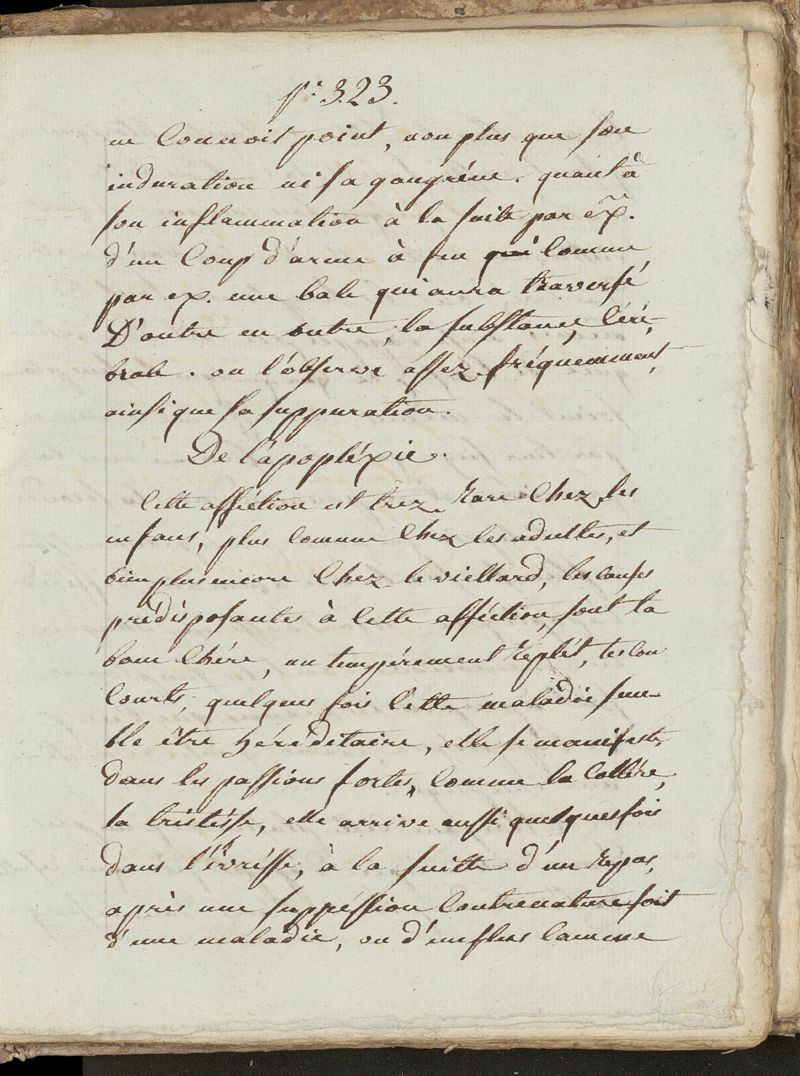 p.e 323.
ne Connoit point, non plus que son
induration ni sa gangréne. quant à
son inflammation à la suite par ex.
d'un Coup d'arme à feu qui Comme
par ex. une bale qui aura traversé
D'outre en outre, la substance, Céré-
brale. on l'observe assez fréquemment,
ainsi que sa suppuration.
De l'apopléxie.
Cette afféction est trez Rare Chez les
enfans, plus Commune Chez les adultes, et
bien plus encore Chez le viellard, les causes
prédisposantes à Cette afféction sont la
bonne Chére, un tempérement Replét, les Cou
Courts, quelques fois Cette maladie sem-
ble être héréditaire, elle se manifeste
dans les passions fortes, Comme la Collére,
la tristésse, elle arrive aussi quelques fois
dans l'ivrésse, à la suitte d'un Repas,
après une suppréssion Contre nature soit
d'une maladie, ou d'un flux